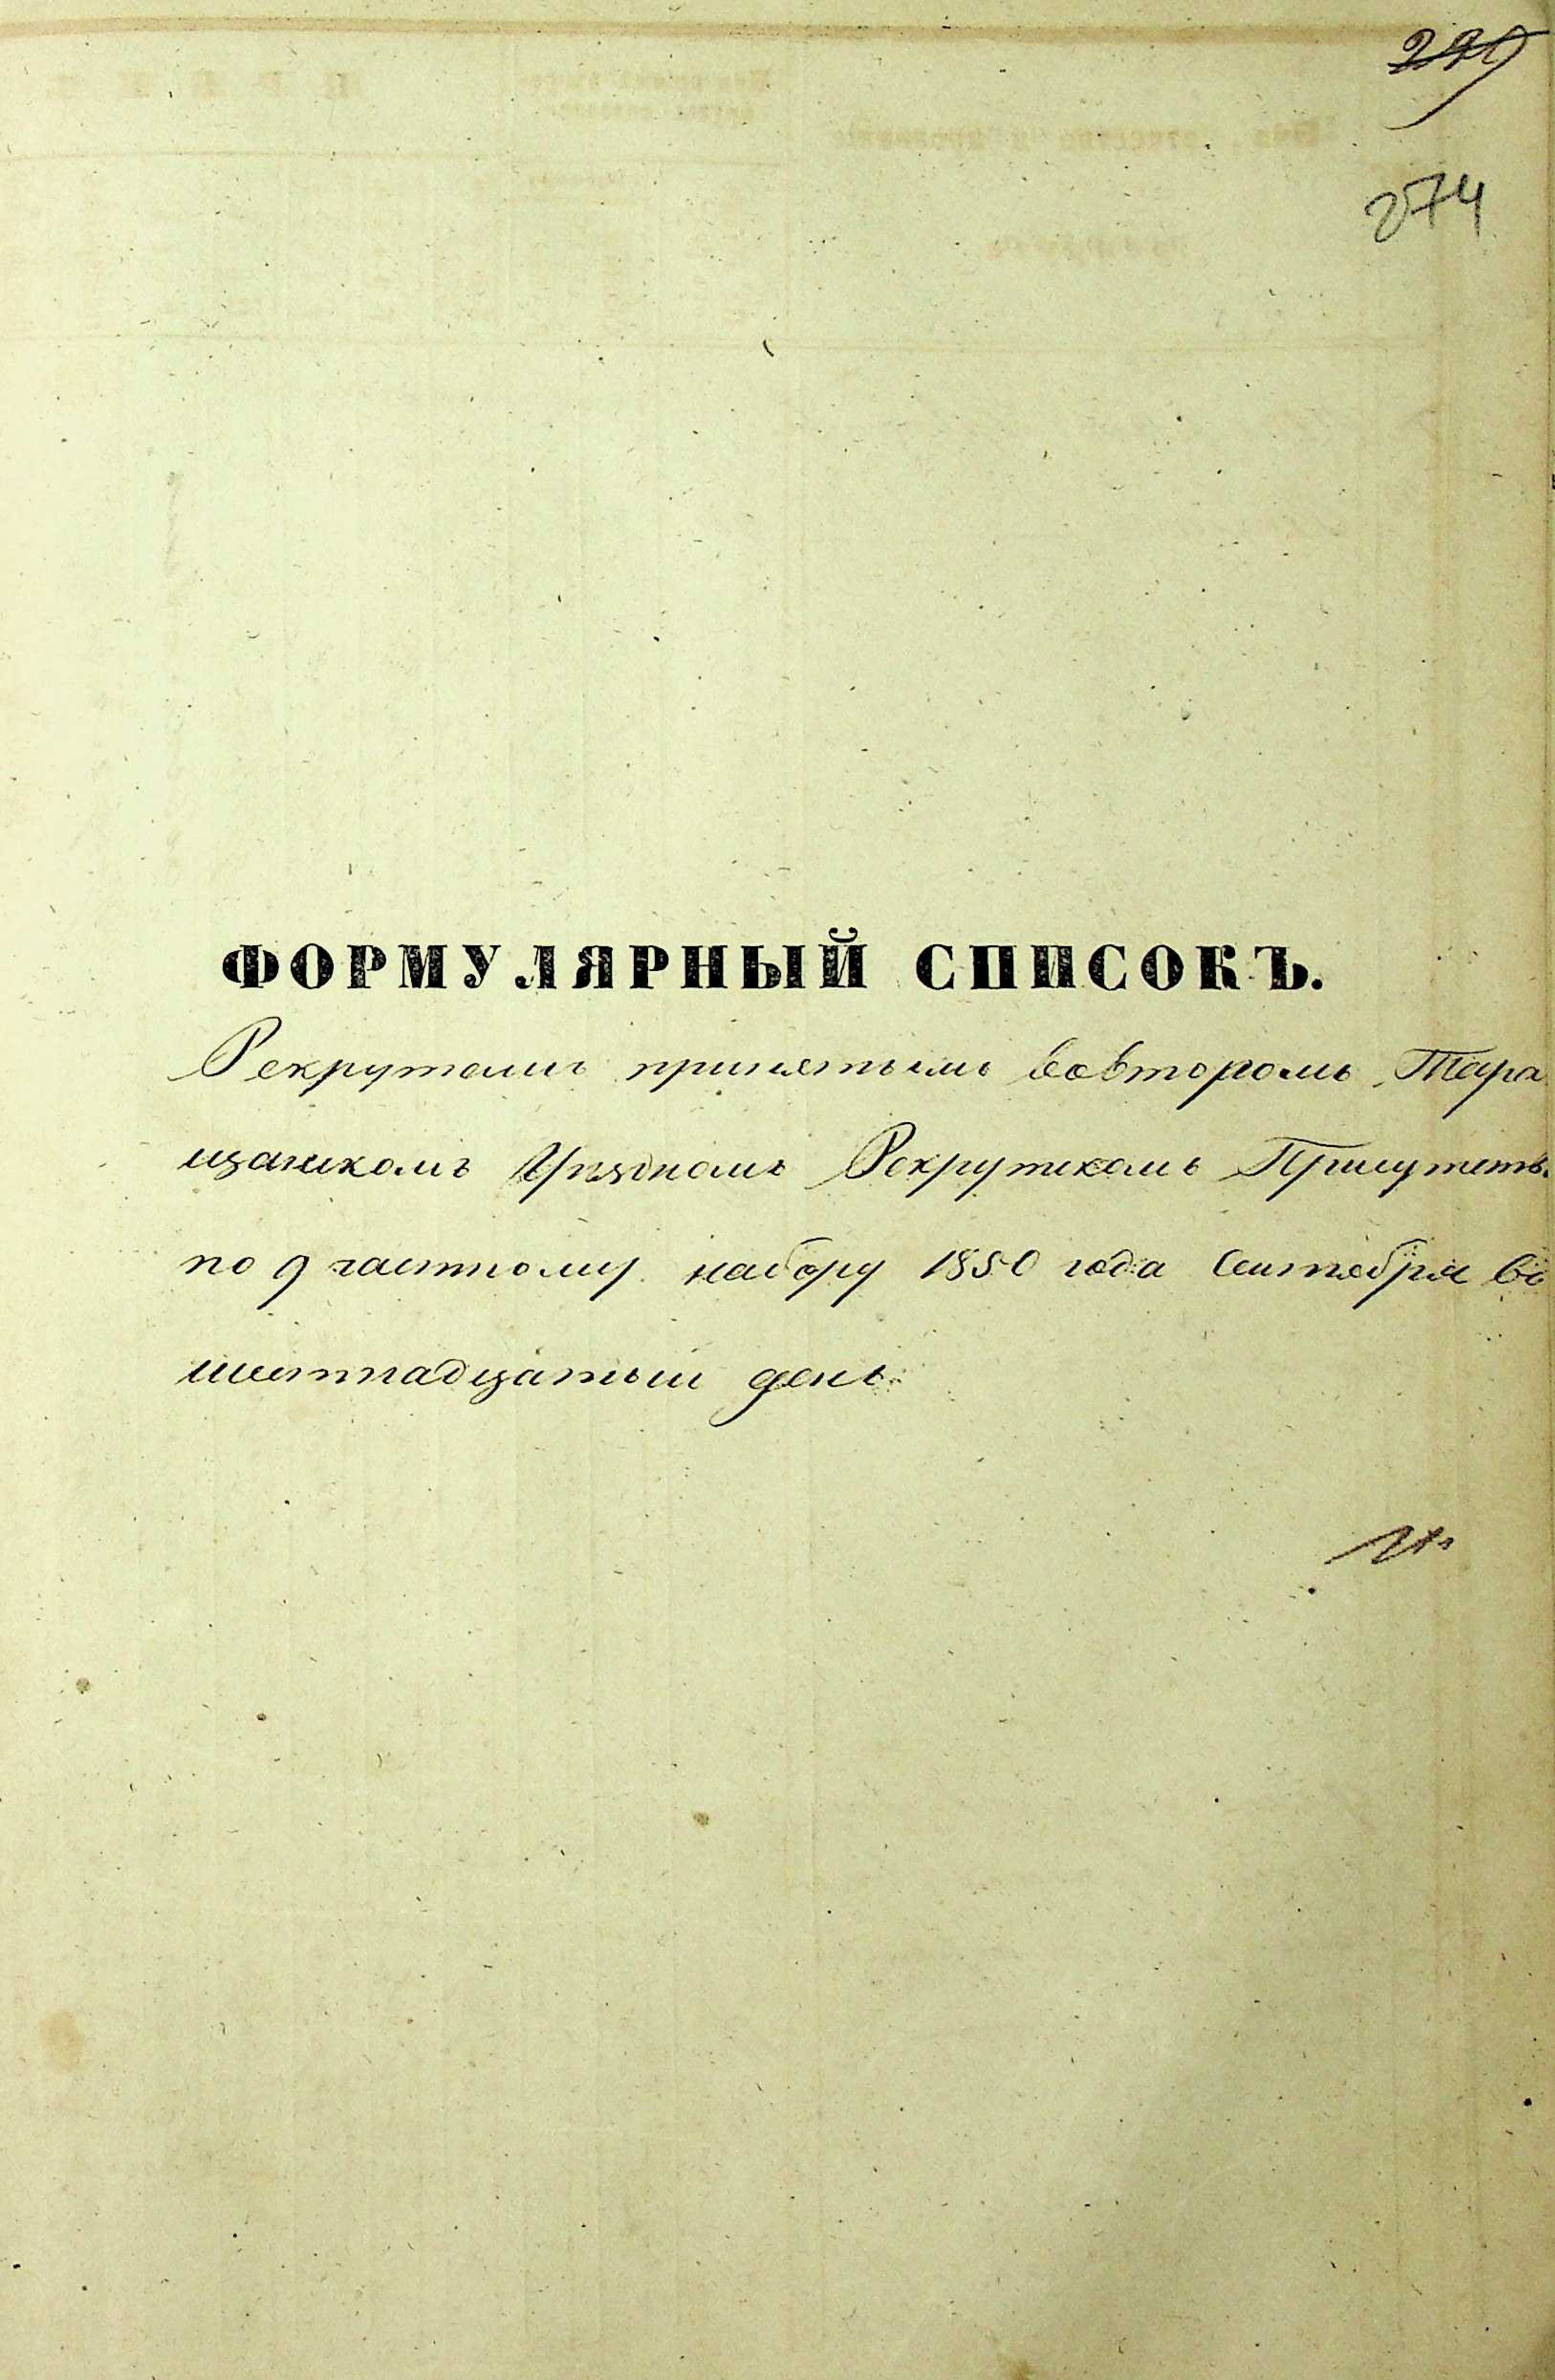 274
ФОРМУЛЯРНЫЙ СПИСОКЪ.
Рекрутамъ принятымъ вовторомъ Тара
щанскомъ Уѣздномъ Рекрутскомъ Присутств
по 9 частному набору 1850 года Сентября въ
шестнадцатый день